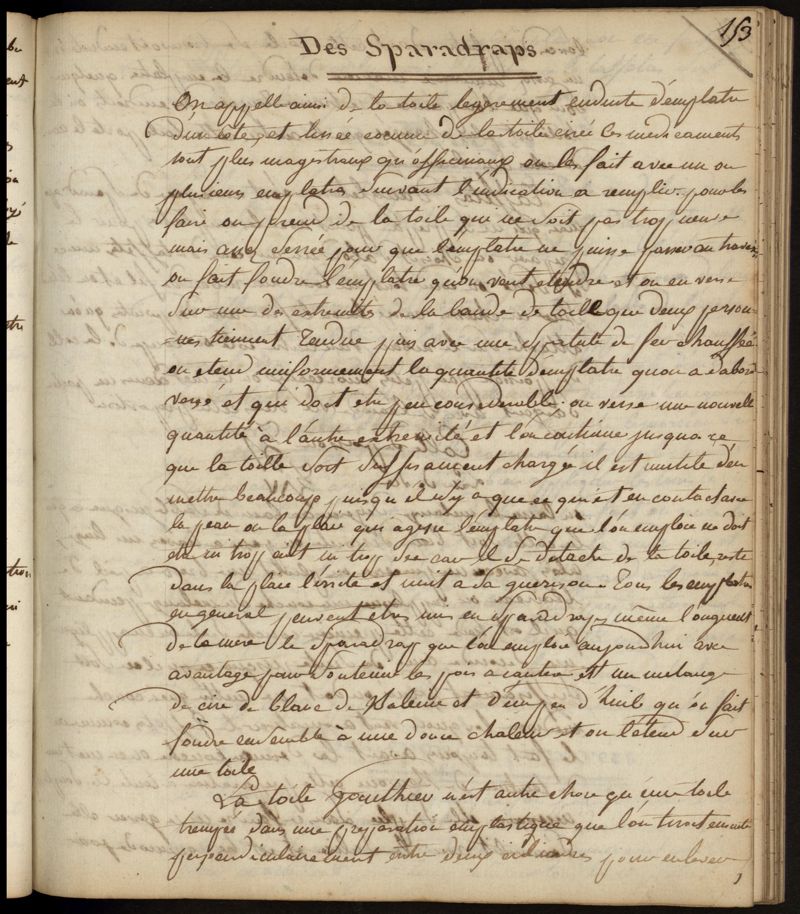 153
Des Sparadraps
On appelle ainsi de la toile legerement enduite d'emplatre
d'un coté, et lissée comme de la toile cirée les medicaments
sont plus magistraux qu'officinaux on les fait avec un ou
plusieurs emplatres suivant l'indication a remplir. pour les
faire on prend de la toile qui ne soit pas trop neuve
mais assez serrée pour que l'emplatre ne puisse passer au travers
on fait fondre l'emplatre qu'on veut etendre et on en verse
sur une des extremités de la bande de toile que deux person-
=nes tiennent tendue puis avec une spatule de fer chauffée
on etend uniformement la quantité d'emplatre qu'on a d'abord
versé et qui doit etre peu considerable. on verse une nouvelle
quantité à l'autre extremité et l'on continue jusqu'a ce
que la toille soit suffisament chargée il est inutile d'en
mettre beaucoup puisqu'il n'y a que ce qui est en contact avec
la peau ou la plaie qui agisse l'emplatre que l'on emploie ne doit
etre ni trop ni trop sec car il se detache de la toile, reste
dans la plaie l'irrite et nuit a sa guerison. Tous les emplatres
en general peuvent etre mis en sparadraps même l'onguent
de la mere le Sparadrap que l'on emploie aujourdhui avec
avantage pour soutenir les pois a cautere est un melange
de cire de blanc de Baleine et d'un peu d'huile qu'on fait
fondre ensemble à une douce chaleur et on l'etend sur
une toile
La toile Gauthier n'est autre chose qu'une toile
trempée dans une preparation emplastique que l'on tire ensuite
perpendiculairement entre deux pour enlever